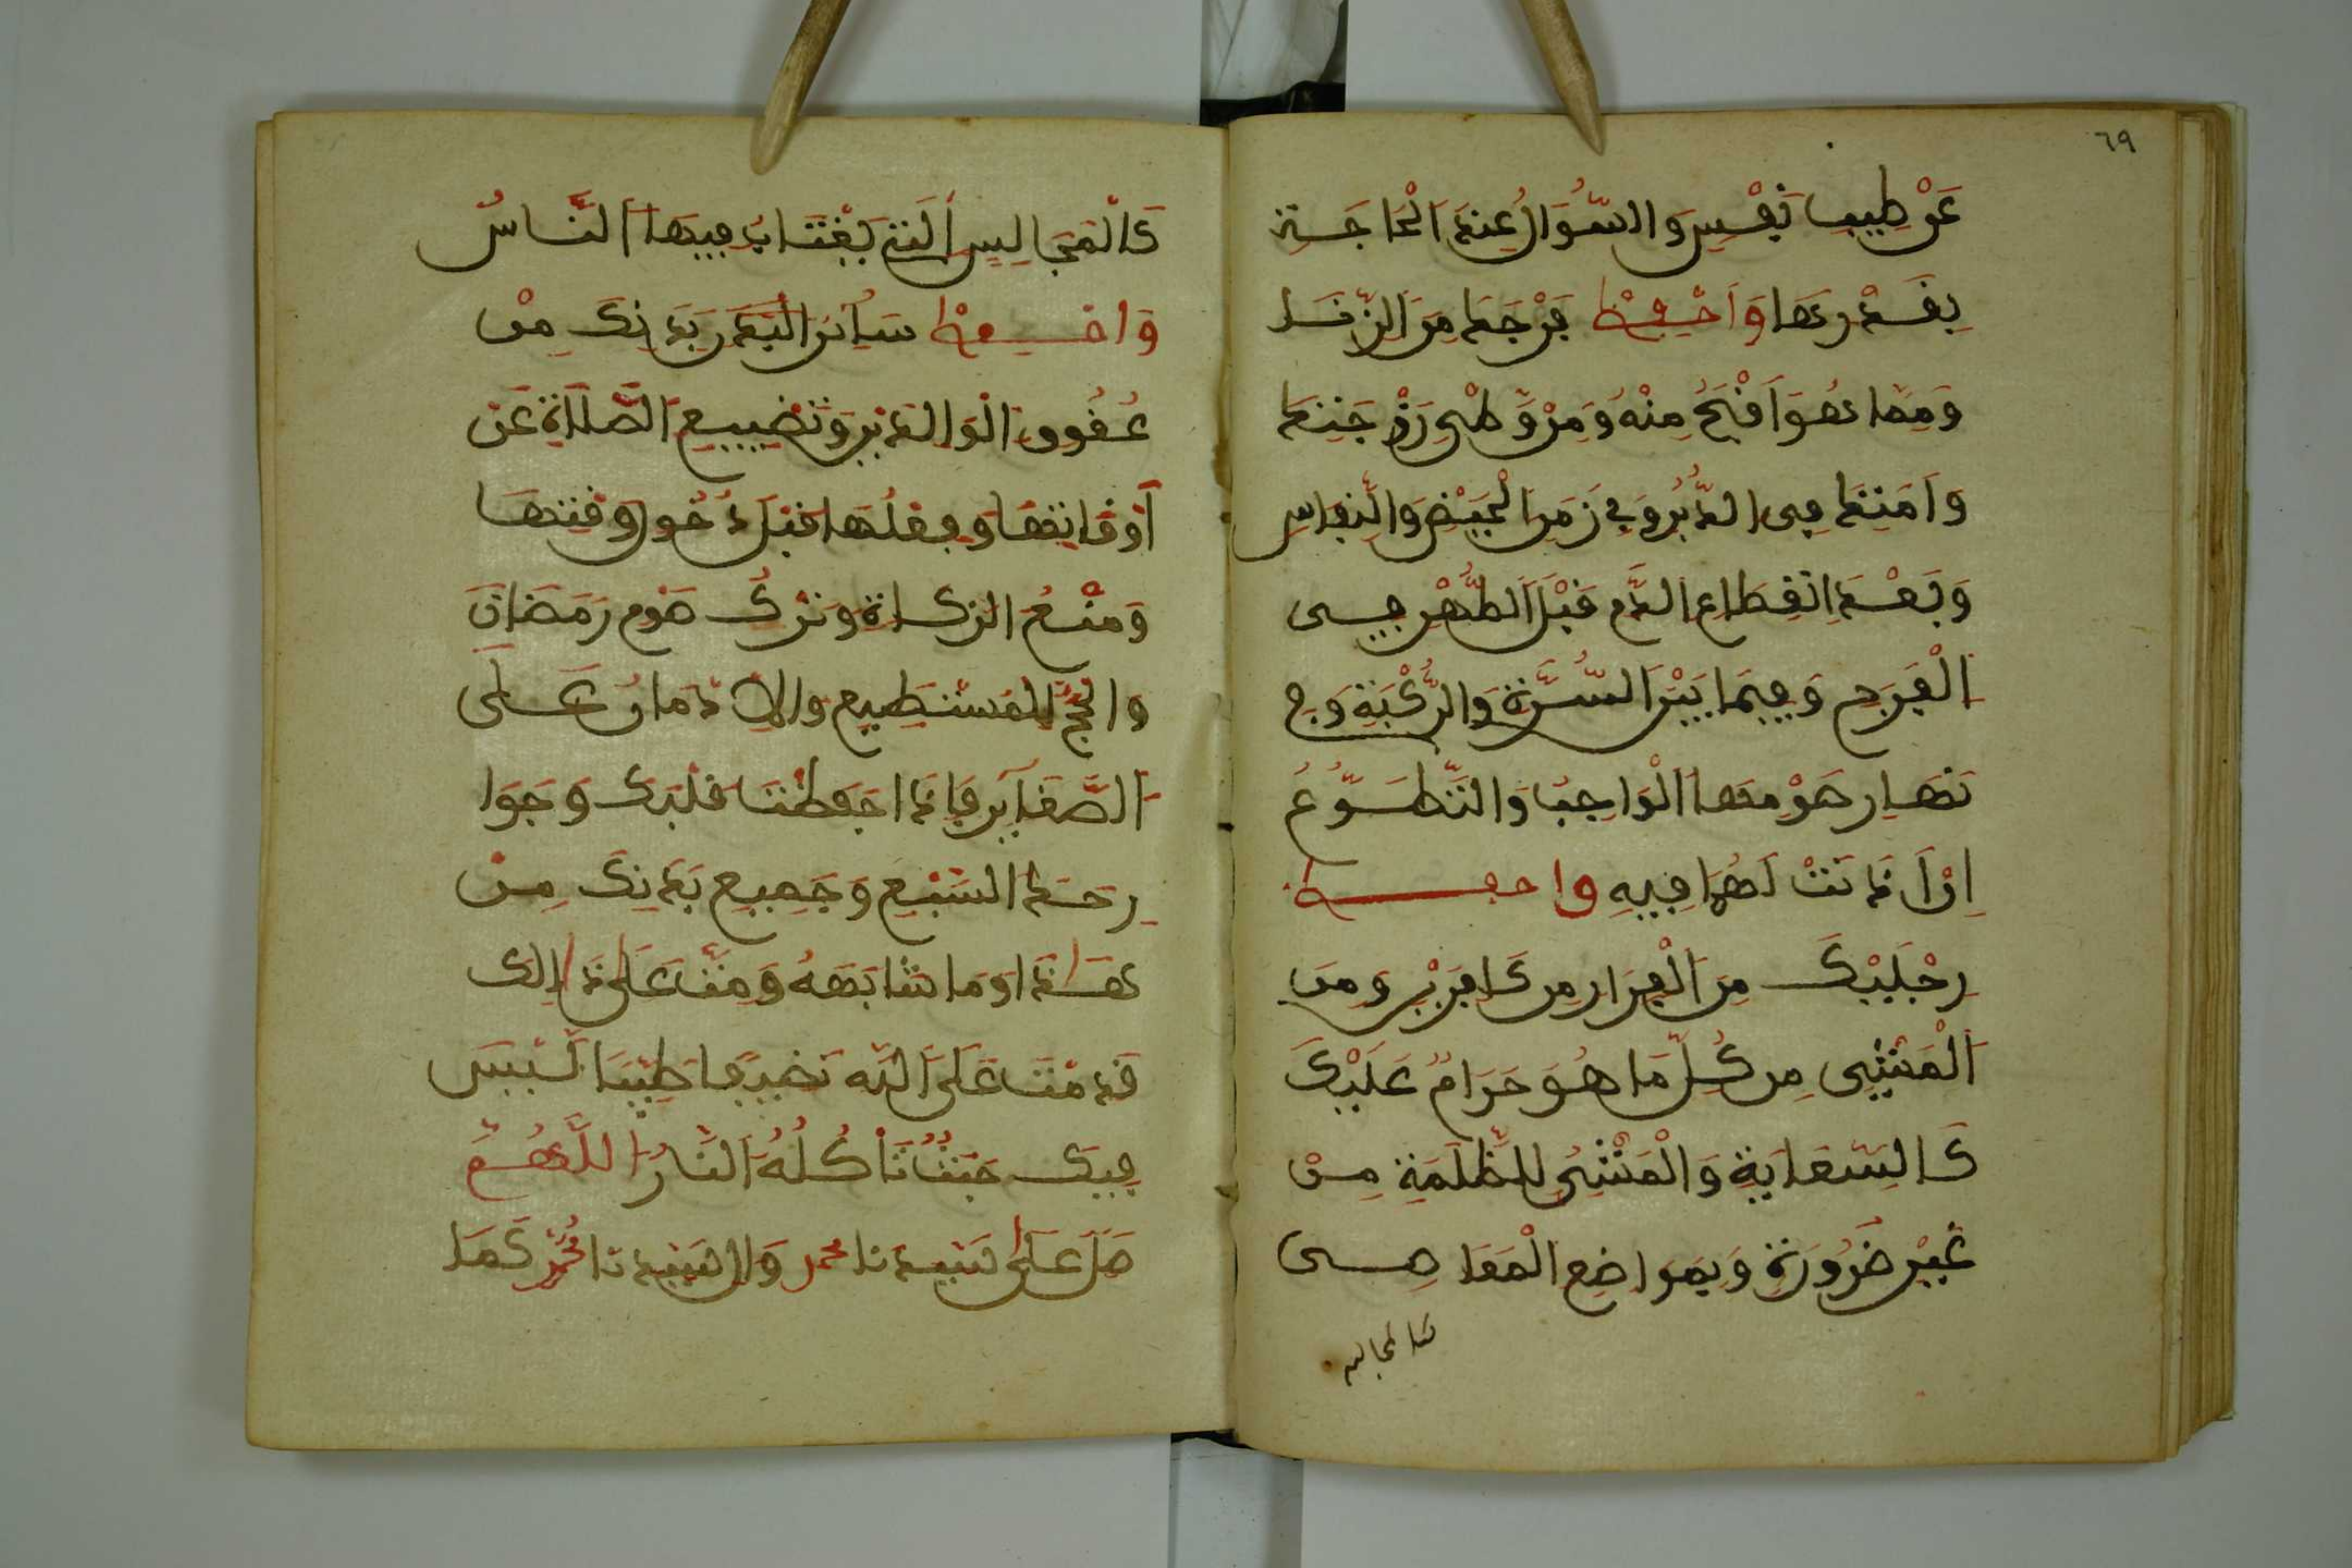 ٦٩
عَنْ طِيبِ نَفْسٍ وَالسُّوَالُ عِنْدَ الْحَاجَةِ
بِقَدْرِهَا وَاحْفِظْ فَرْجَكَ مِنَ الزِّنَا
وَمِمَّا هُوَ أَقْبَحُ مِنْهُ وَمِنْ وَطْىِ زَوْجَتِكَ
وَأَمَتِكَ فِى الدُّبُرِ وَفِي زَمَنِ الْحَيْضِ وَالنِّفَاسِ
وَبَعْدَ انْقِطَاعِ الدَّمِ قَبْلَ الطُّهْرِ فِى
الْفَرْجِ وَفِيمَا بَيْنَ السُّرَّةِ وَالرُّكْبَةِ وَفِي
نَهَارِ صَوْمِهَا الْوَاجِبِ وَالتَّطَوُّعِ
إِنْ أَذِنْتَ لَهَا فِيهِ وَاحفظ
رِجْلَيْكَ مِنَ الْفِرَارِ مِن كَافِرَيْنِ وَمِنَ
الْمَشْيِ مِن كُلِّ مَا هُوَ حَرَامٌ عَلَيْكَ
كَالسِّعَايَةِ وَالْمَشْيِ لِلظَّلَمَةِ مِنْ
غَيْرِ ضَرُورَةٍ وَبِمَوَاضِعِ الْمَعَاصِى
كالمجالس
كَالْمَجَالِسِ الَّتِي يَغْتَابُ فِيهَا النَّاسُ
وَاحْفِظْ سَائِرَ الْبَدَنِ بَدَنِكَ مِنْ
عُقُوقِ الْوَالِدَيْنِ وَتَضْيِيعِ الصَّلَاةِ عَنْ
أَوْقَاتِهَا وَفِعْلِهَا قَبْلَ دُخُولِ وَقْتِهَا
وَمَنْعُ الزكَاةِ وَتَرْكِ صَوْمِ رَمَضَانَ
وَالْحَجِّ لِلْمُسْتَطِيعِ وَالْإِدْمَانُ عَلَى
الصَّغَآيِرِ فَإِذَا حَفِظْتَ قَلْبَكَ وَجَوَا
رِحَكَ السَّبْعَ وَجَمِيعَ بَدَنِكَ مِنْ
هَذَا وَمَا شَابَهَهُ وَمِتَّ عَلَى ذَالِكَ
قَدِمْتَ عَلَى اللَّهِ نَضِيفًا طَيِّبًا لَيْسَ
فِيكَ خَبَثٌ تَأْكُلُهُ النَّارُ اللَّهُمَّ
صَلِّ عَلَى سَيِّدِنَا محمد وَآلِ سَيِّدِنَا مُحَمَّدٍ كَمَا